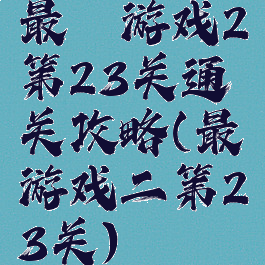 最 游戏2
第23关通
关攻略(最
游戏二第2
3关)